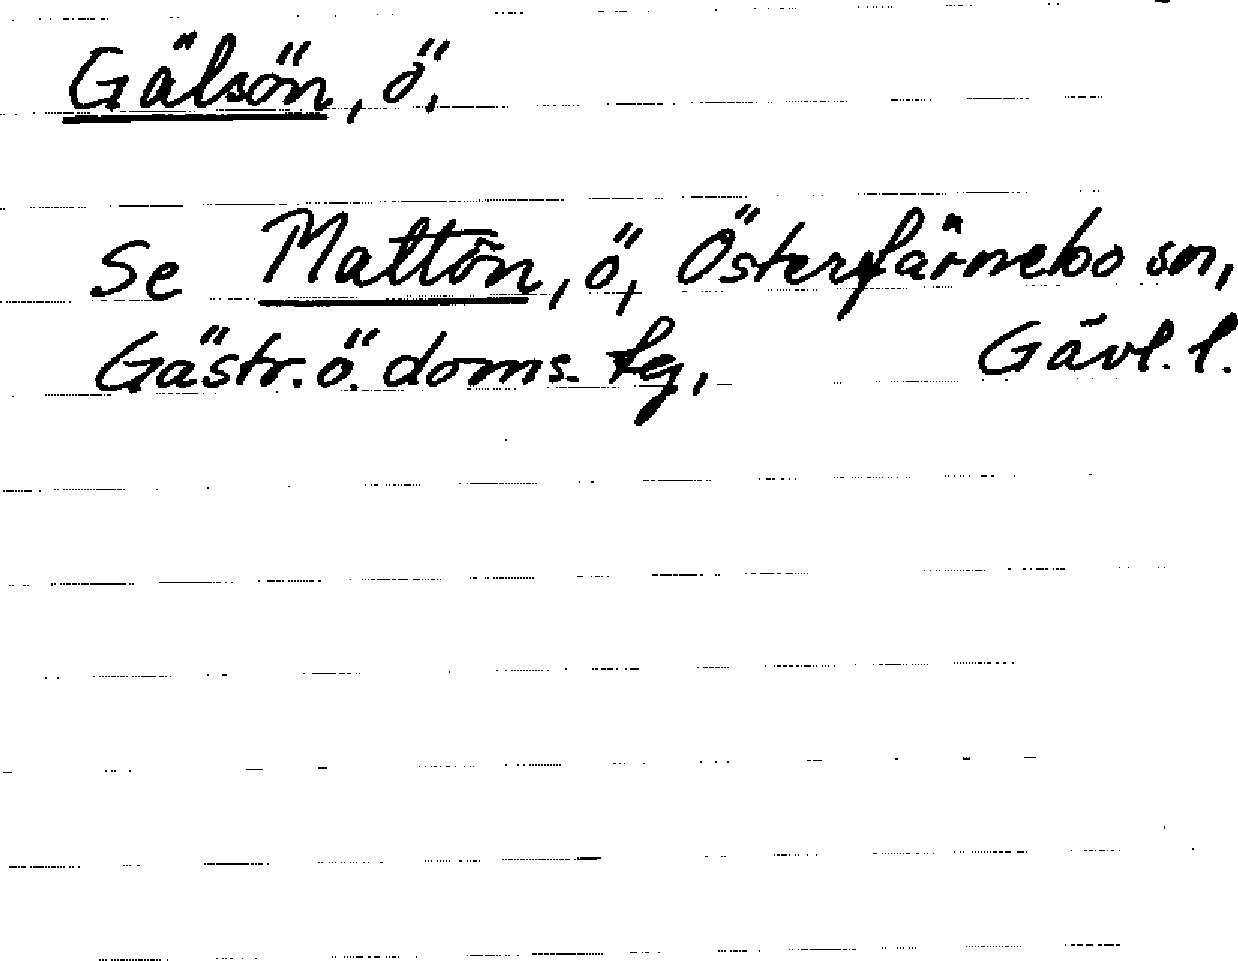 Gälsön, ö.
Se Mattön, ö, Österfärnebo sn,
Gästr. ö. doms. tg, Gävl. l.